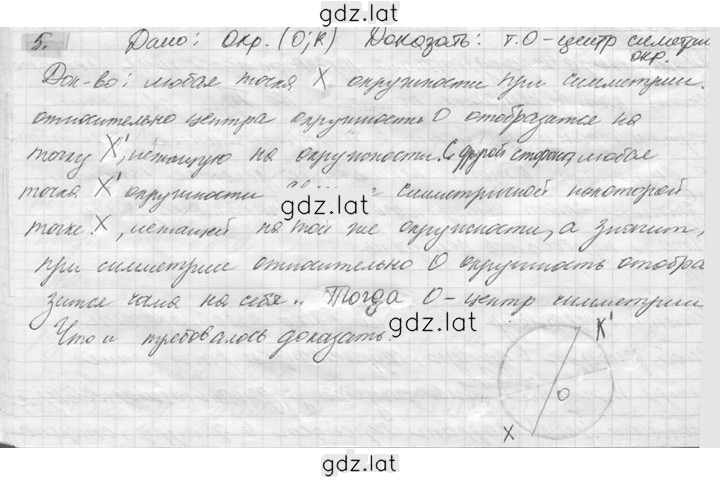 gdz.lat
5. Дано: Окр. (O; R) Доказать: т. O - центр симетрии
окр.
Док-во: любая точка X окружности при симметрии
относительно центра окружности O отобразится на
точку X', лежащую на окружности. С другой стороны, любая
точка X' окружности симметричной некоторой
gdz.lat
точке X, лежащей на той же окружности, а значит,
при симметрии относительно O окружность отобра
зится сама на себя. Тогда O - центр симметрии
gdz.lat
Что и требовалось доказать.
K'
O
X
gdz.lat